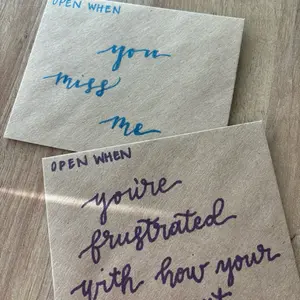 OPEN WHEN
you
miss
me
OPEN WHEN
you're
frustrated
with how your